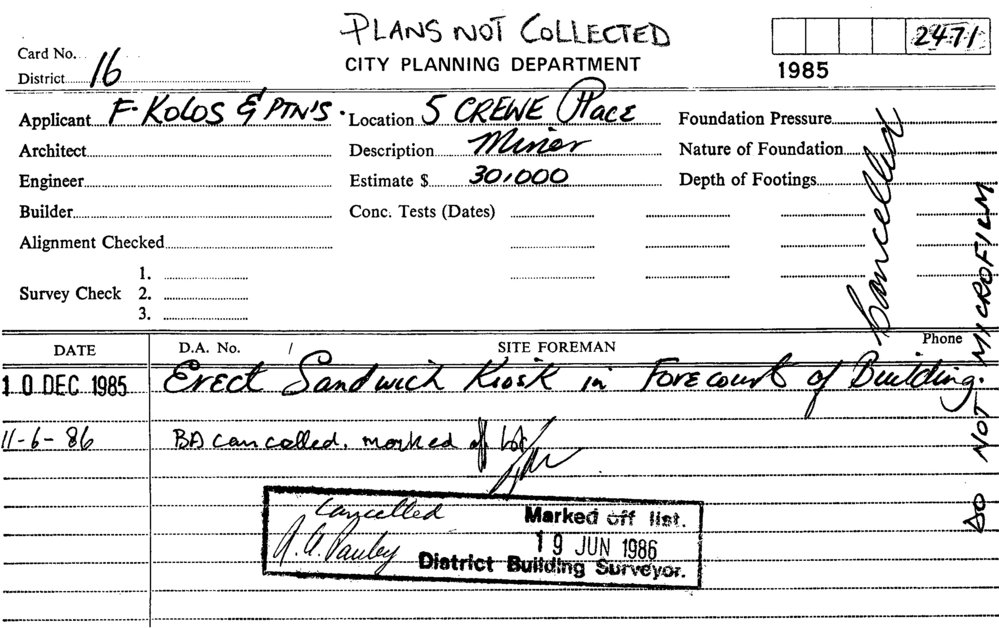 PLANS NOT COLLECTED
CITY PLANNING DEPARTMENT
2471
1985
Card No.
District 16
Applicant F. KOLOS & PTN'S.
Location 5 CREWE Place
Foundation Pressure
Architect
Description Minor
Nature of Foundation
Engineer
Estimate $ 30,000
Depth of Footings
Builder
Conc. Tests (Dates)
Alignment Checked
Survey Check
1.
2.
3.
Cancelled
DO NOT MICROFILM
DATE D.A. No. SITE FOREMAN Phone
10 DEC 1985 Erect Sandwich Kiosk in Forecourt of Building.
11-6-86 BA cancelled. marked of
Cancelled Marked off list.
19 JUN 1986
District Building Surveyor.